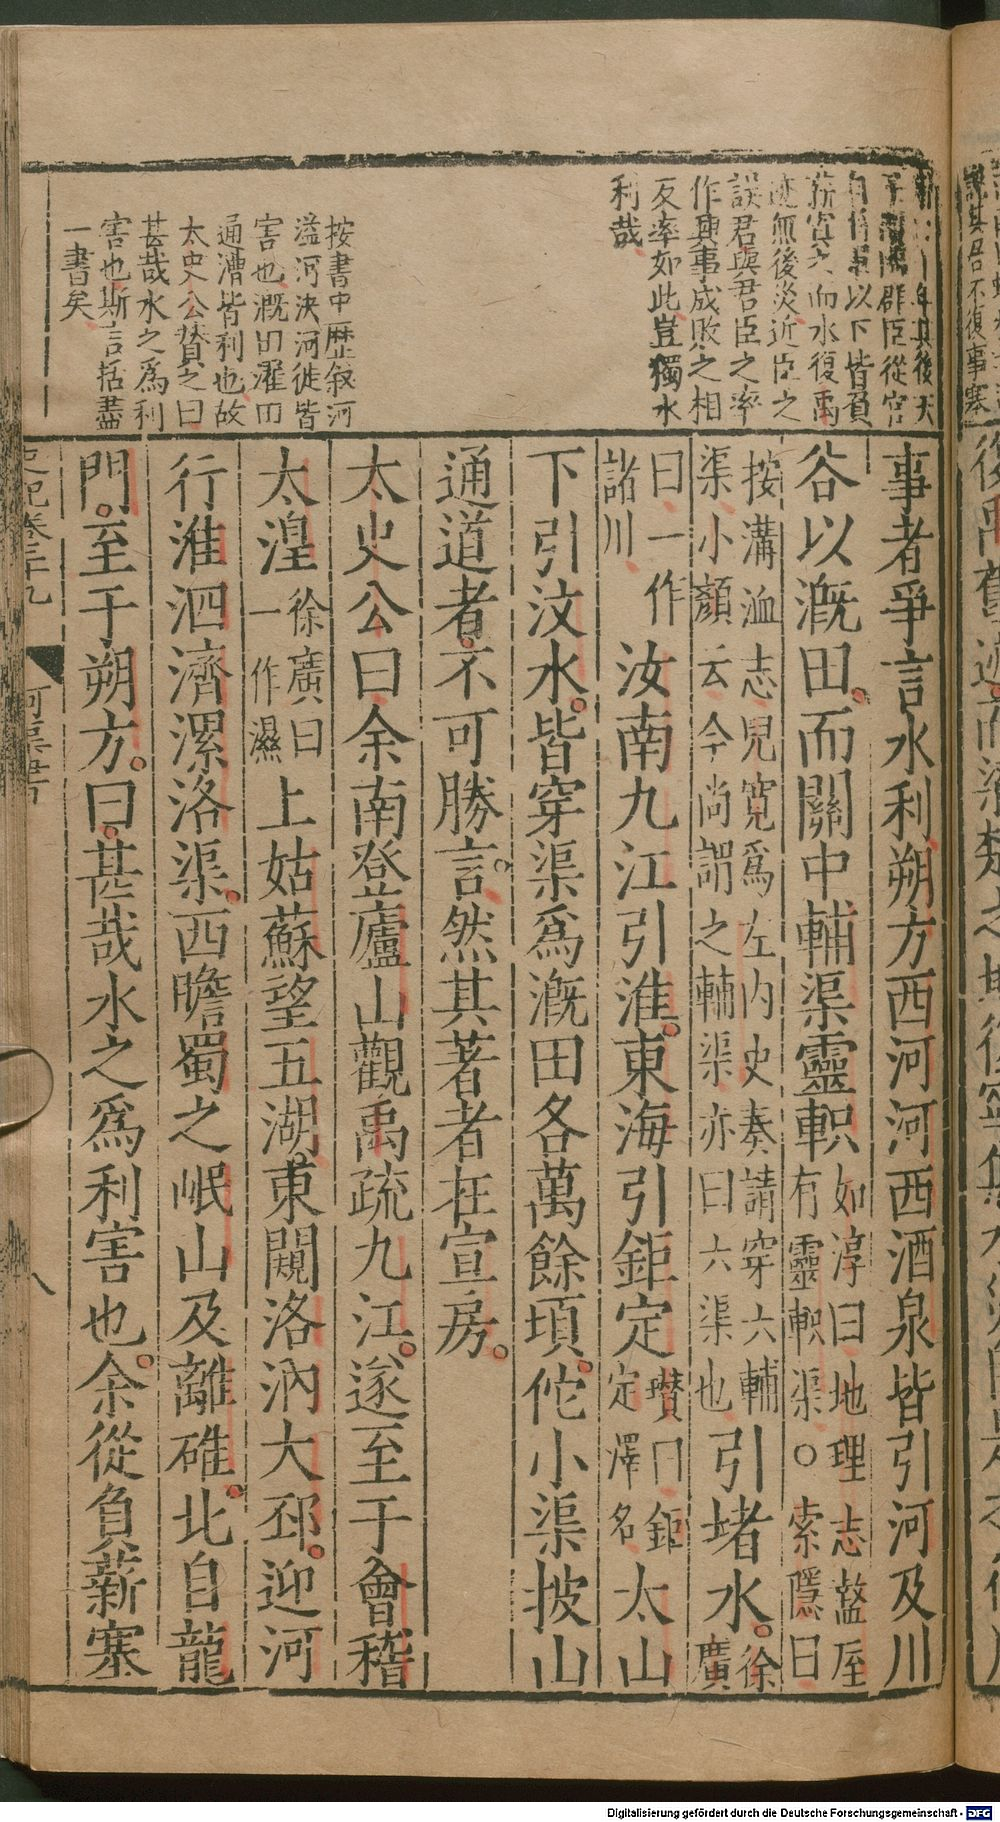 年其後天
羣臣從官
自將軍以下皆負
薪寘决而水復禹
迹無後災近臣之
誤君與君臣之率
作興事成敗之相
反率如此豈獨水
利哉
按書中歷敘河
溢河決河徙皆
害也漑田濯田
通漕皆利也故
太史公贊之曰
甚哉水之爲利
害也斯言括盡
一書矣
事者爭言水利朔方西河河西酒泉皆引河及川
谷以漑田而關中輔渠靈軹如淳曰地理志盩厔有靈軹渠○索隱曰
按溝洫志兒寬爲左内史奏請穿六輔渠小顏云今尚謂之輔渠亦曰六渠也引堵水徐廣
曰一作諸川汝南九江引淮東海引鉅定瓉曰鉅定澤名太山
下引汶水皆穿渠爲漑田各萬餘頃佗小渠披山
通道者不可勝言然其著者在宣房
太史公曰余南登廬山觀禹疏九江遂至于會稽
太湟徐廣曰一作濕上姑蘇望五湖東闚洛汭大邳迎河
行淮泗濟漯洛渠西瞻蜀之岷山及離碓北自龍
門至于朔方曰甚哉水之爲利害也余從負薪塞
史記卷二十九
河渠書
八
Digitalisierung gefördert durch die Deutsche Forschungsgemeinschaft - DFG